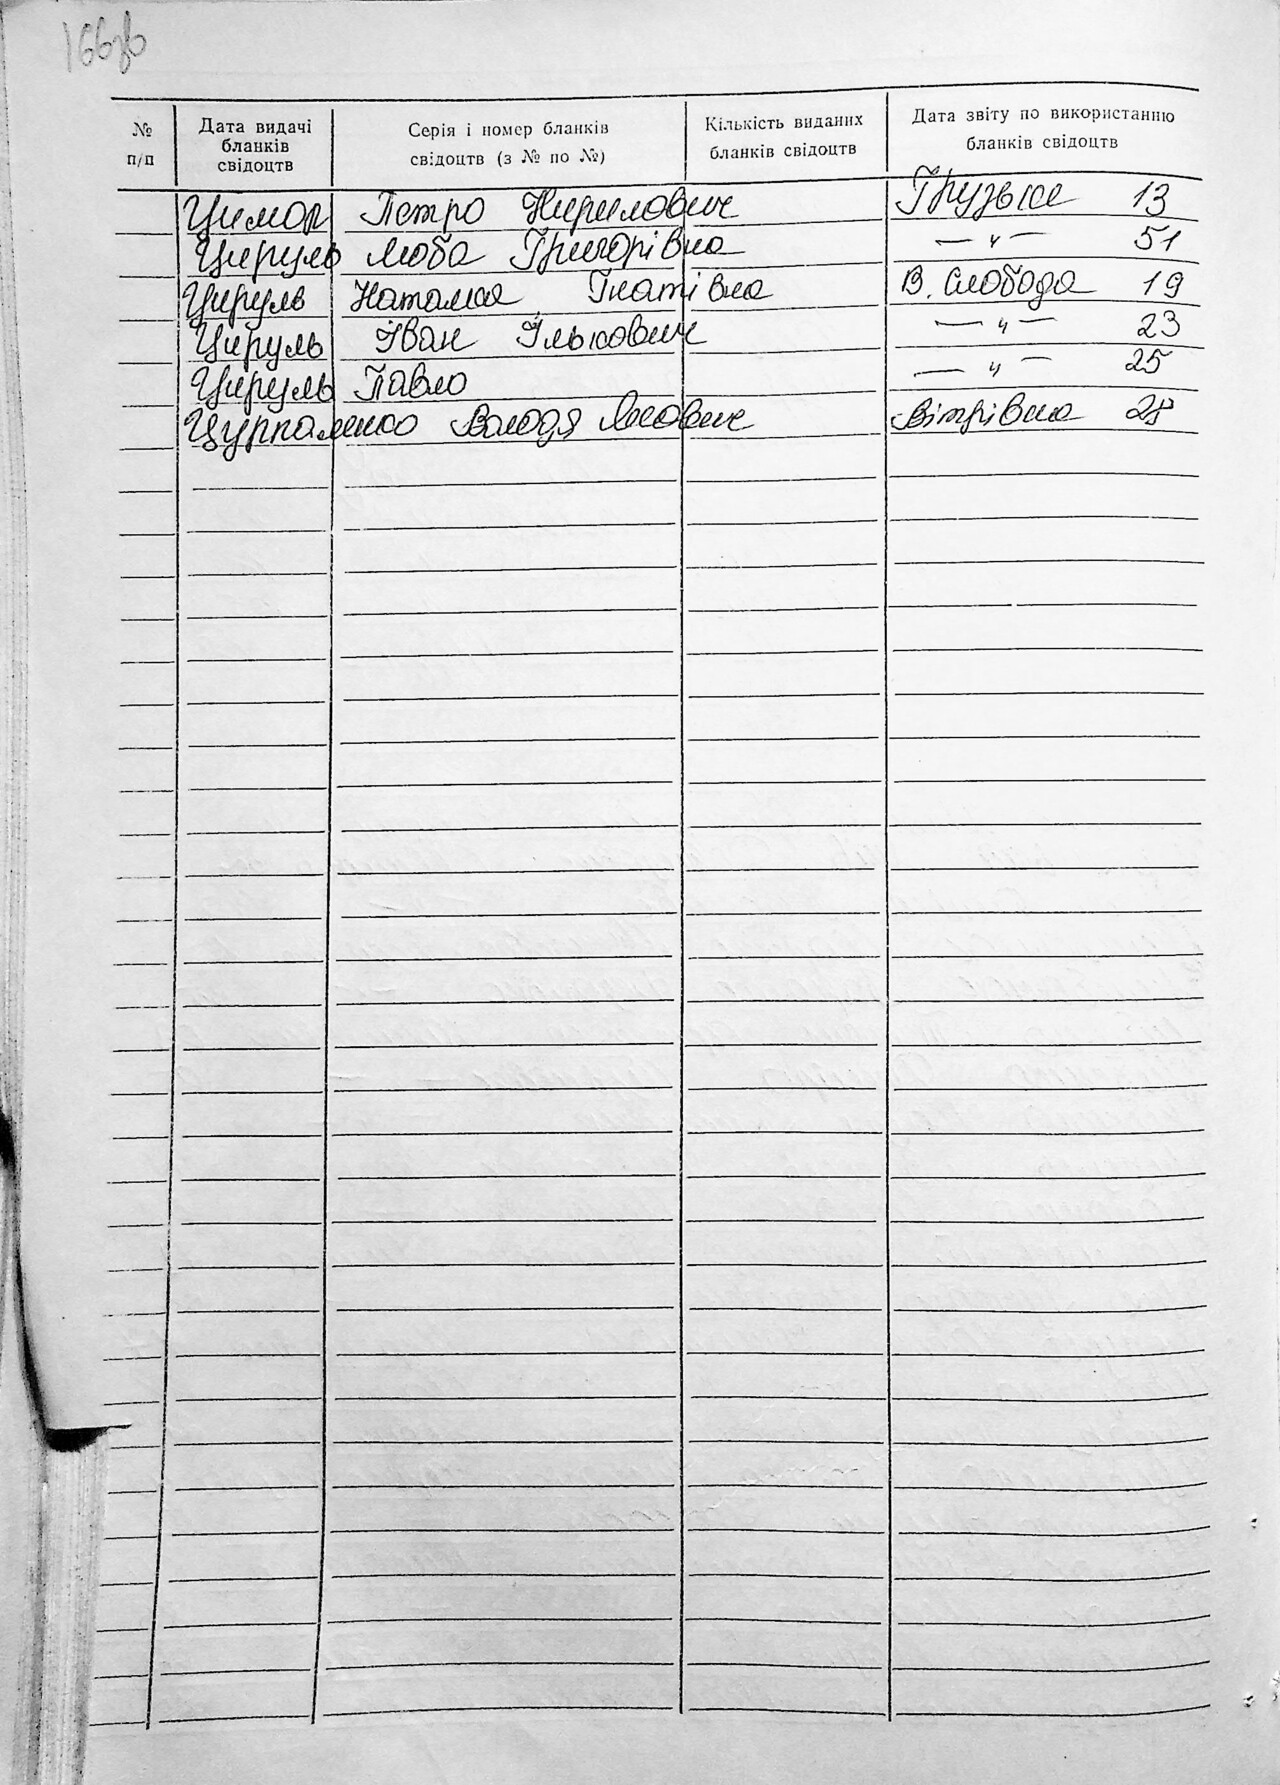 166зв
№ п/п
Дата видачі бланків свідоцтв
Серія і номер бланків свідоцтв (з № по №)
Кількість виданих бланків свідоцтв
Дата звіту по використанню бланків свідоцтв
Цимор Петро Кирилович Грузьке 13
Цируль Люба Григорівна — " — 51
Цируль Наталія Гнатівна В. Слобода 19
Цируль Іван Ількович — " — 23
Цируль Павло — " — 25
Цурпаленко Володя Якович Вітрівка